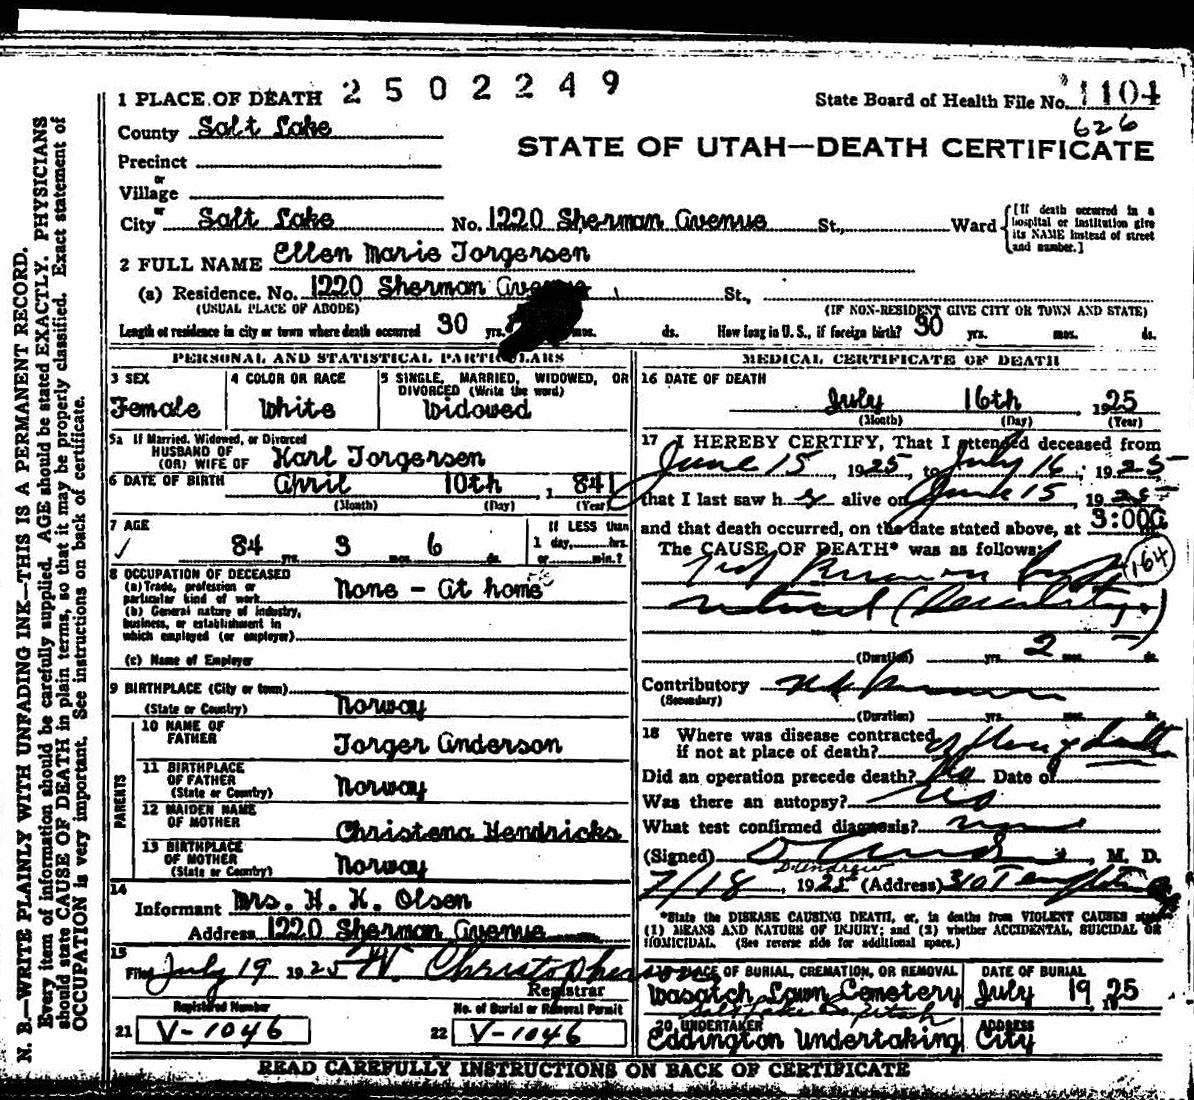 2502249
1 PLACE OF DEATH
State Board of Health File No. 1104
626
County Salt Lake
STATE OF UTAH—DEATH CERTIFICATE
Precinct
or
Village
or
City Salt Lake No. 1220 Sherman Avenue St., Ward
[If death occurred in a hospital or institution give its NAME instead of street and number.]
2 FULL NAME Ellen Marie Jorgensen
(a) Residence. No. 1220 Sherman Avenue St.,
(USUAL PLACE OF ABODE) (IF NON-RESIDENT GIVE CITY OR TOWN AND STATE)
Length of residence in city or town where death occurred 30 yrs. mos. ds. How long in U. S., if foreign birth? 30 yrs. mos. ds.
PERSONAL AND STATISTICAL PARTICULARS
3 SEX
Female
4 COLOR OR RACE
White
5 SINGLE, MARRIED, WIDOWED, OR DIVORCED (Write the word)
Widowed
5a If Married, Widowed, or Divorced
HUSBAND OF
(OR) WIFE OF Karl Jorgensen
6 DATE OF BIRTH April 10th, 1841
(Month) (Day) (Year)
7 AGE
84 yrs. 3 mos. 6 ds.
If LESS than
1 day, hrs.
or min.?
8 OCCUPATION OF DECEASED
(a) Trade, profession or
particular kind of work None - At home
(b) General nature of industry,
business, or establishment in
which employed (or employer)
(c) Name of Employer
9 BIRTHPLACE (City or town)
(State or Country) Norway
PARENTS
10 NAME OF
FATHER Jorger Anderson
11 BIRTHPLACE
OF FATHER
(State or Country) Norway
12 MAIDEN NAME
OF MOTHER Christena Hendricks
13 BIRTHPLACE
OF MOTHER
(State or Country) Norway
14
Informant Mrs. H. K. Olsen
Address 1220 Sherman Avenue
15
Filed July 19 1925 W. Christophersen
Registrar
Registered Number No. of Burial or Removal Permit
21 V-1046 22 V-1046
MEDICAL CERTIFICATE OF DEATH
16 DATE OF DEATH
July 16th, 1925
(Month) (Day) (Year)
17 I HEREBY CERTIFY, That I attended deceased from
June 15, 1925, to July 16, 1925
that I last saw her alive on June 15, 1925
and that death occurred, on the date stated above, at 3:00a
The CAUSE OF DEATH* was as follows:
164
natural (Senility)
(Duration) yrs. 2 mos. ds.
Contributory
(Secondary)
(Duration) yrs. mos. ds.
18 Where was disease contracted
if not at place of death?
Did an operation precede death? No Date of
Was there an autopsy? No
What test confirmed diagnosis?
(Signed) M. D.
7/18, 1925 (Address)
*State the DISEASE CAUSING DEATH, or, in deaths from VIOLENT CAUSES state
(1) MEANS AND NATURE OF INJURY; and (2) whether ACCIDENTAL, SUICIDAL OR
HOMICIDAL. (See reverse side for additional space.)
19 PLACE OF BURIAL, CREMATION, OR REMOVAL
Wasatch Lawn Cemetery
DATE OF BURIAL
July 19, 1925
20 UNDERTAKER
Eddington Undertaking
ADDRESS
City
READ CAREFULLY INSTRUCTIONS ON BACK OF CERTIFICATE
N. B.—WRITE PLAINLY WITH UNFADING INK—THIS IS A PERMANENT RECORD.
Every item of information should be carefully supplied. AGE should be stated EXACTLY. PHYSICIANS
should state CAUSE OF DEATH in plain terms, so that it may be properly classified. Exact statement of
OCCUPATION is very important. See instructions on back of certificate.